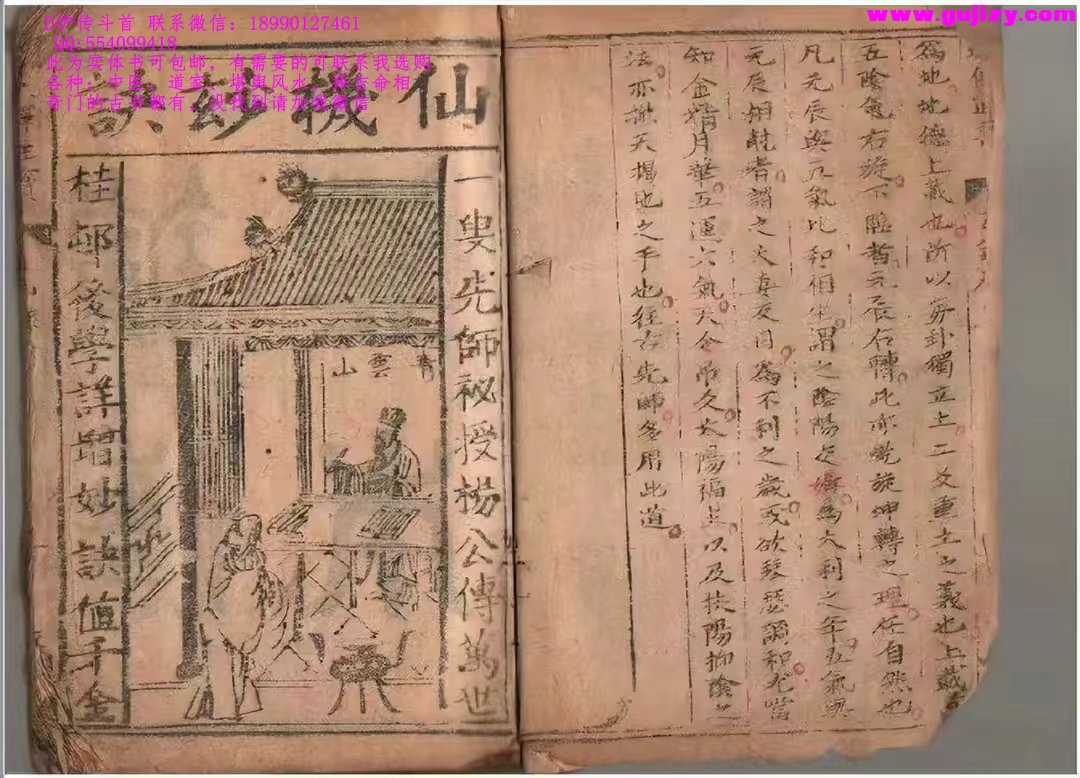 www.gujlzy.com
传斗首 联系微信：18990127461
QQ:554099418
此为实体书可包邮，有需要的可联系我选购
各种，中医，道家，堪舆风水，择吉命相
奇门的古书都有，没找到请加我微信
為地地德上載也所以專卦獨立上二爻重土之義也上載
五陰氣右旋下臨者元辰右轉此亦乾旋坤轉之理任自然也
凡元辰與元氣比和相生謂之陰陽定婚為大利之年五氣與
元辰相尅者謂之夫妻反目為不利之歲或欲琴瑟調和尤當
知金精月華五運六氣天令吊爻太陽福上以及扶陽抑陰之
法亦撥天揭地之手也往古先師多用此道
仙機妙訣
一叟先師祕授楊公傳萬世
青雲山
桂邨後學詳增妙訣值千金